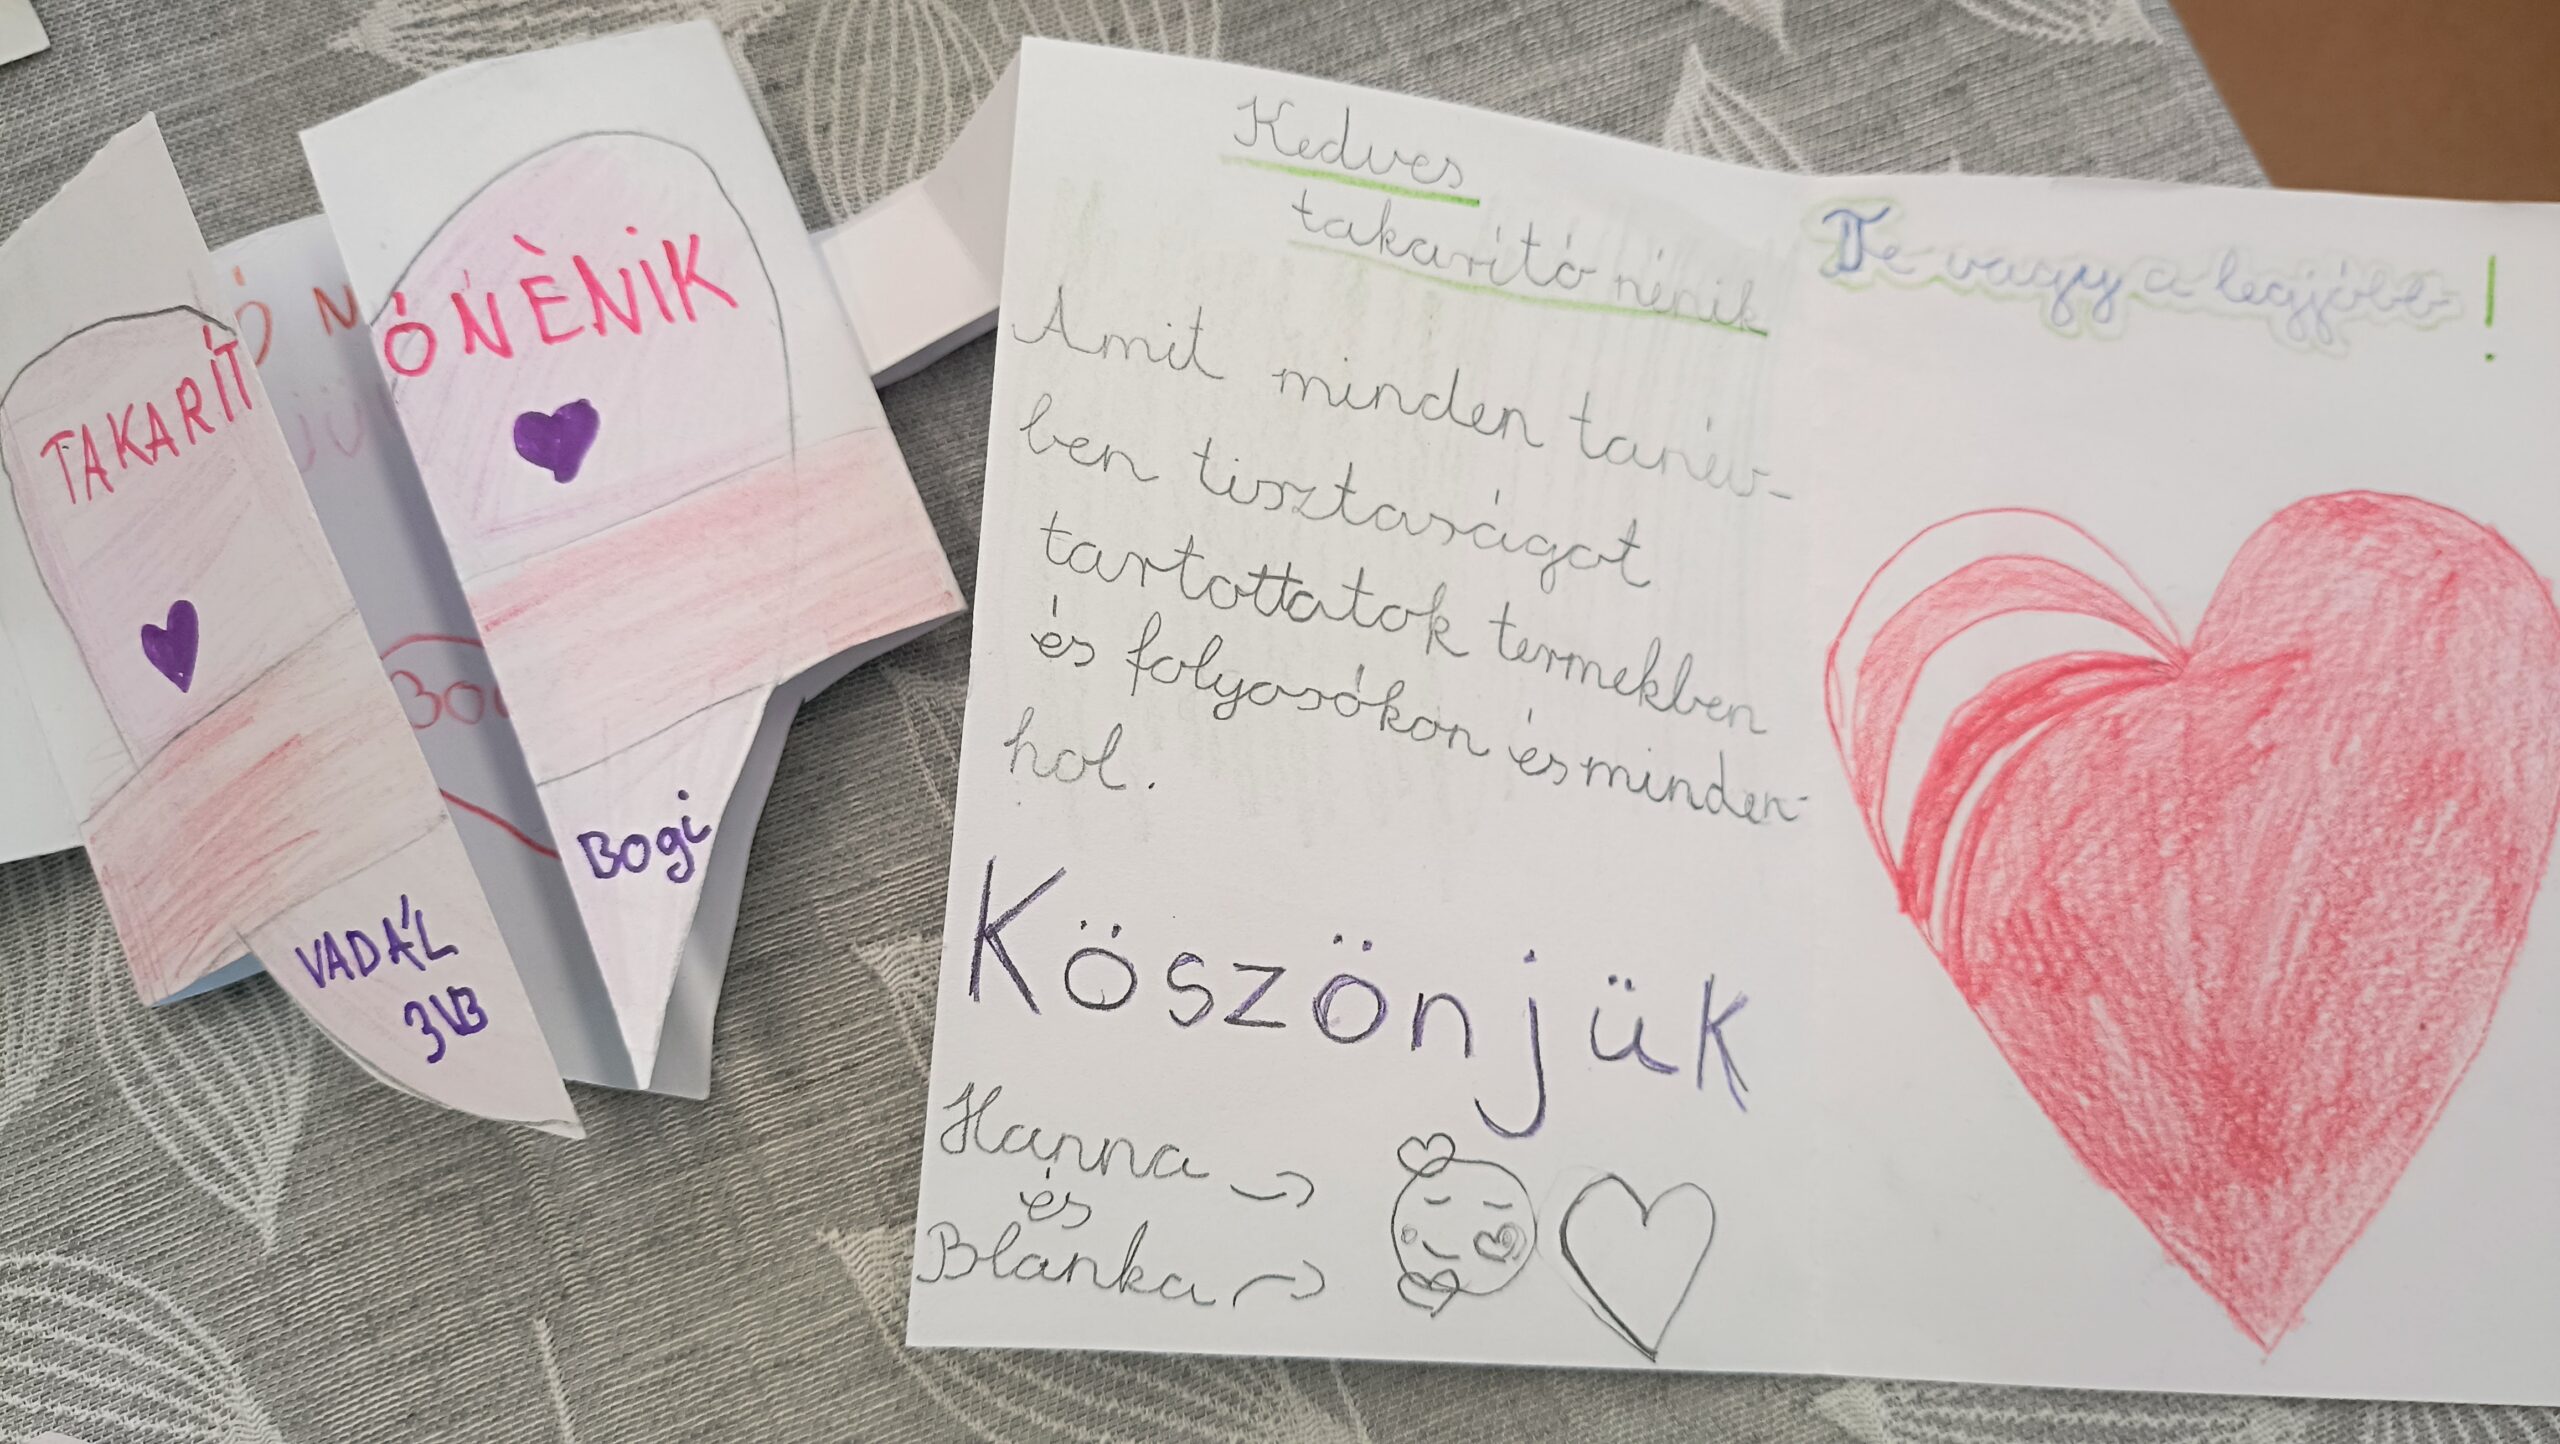 TAKARÍT
ÓNÈNIK
VADÁL
3VB
Bogi
Ó N
Kedves
takarító nénik
Amit minden tanév-
ben tisztaságot
tartottatok termekben
és folyosókon és minden-
hol.
Köszönjük
Hanna
és
Blanka
Te vagy a legjobb!